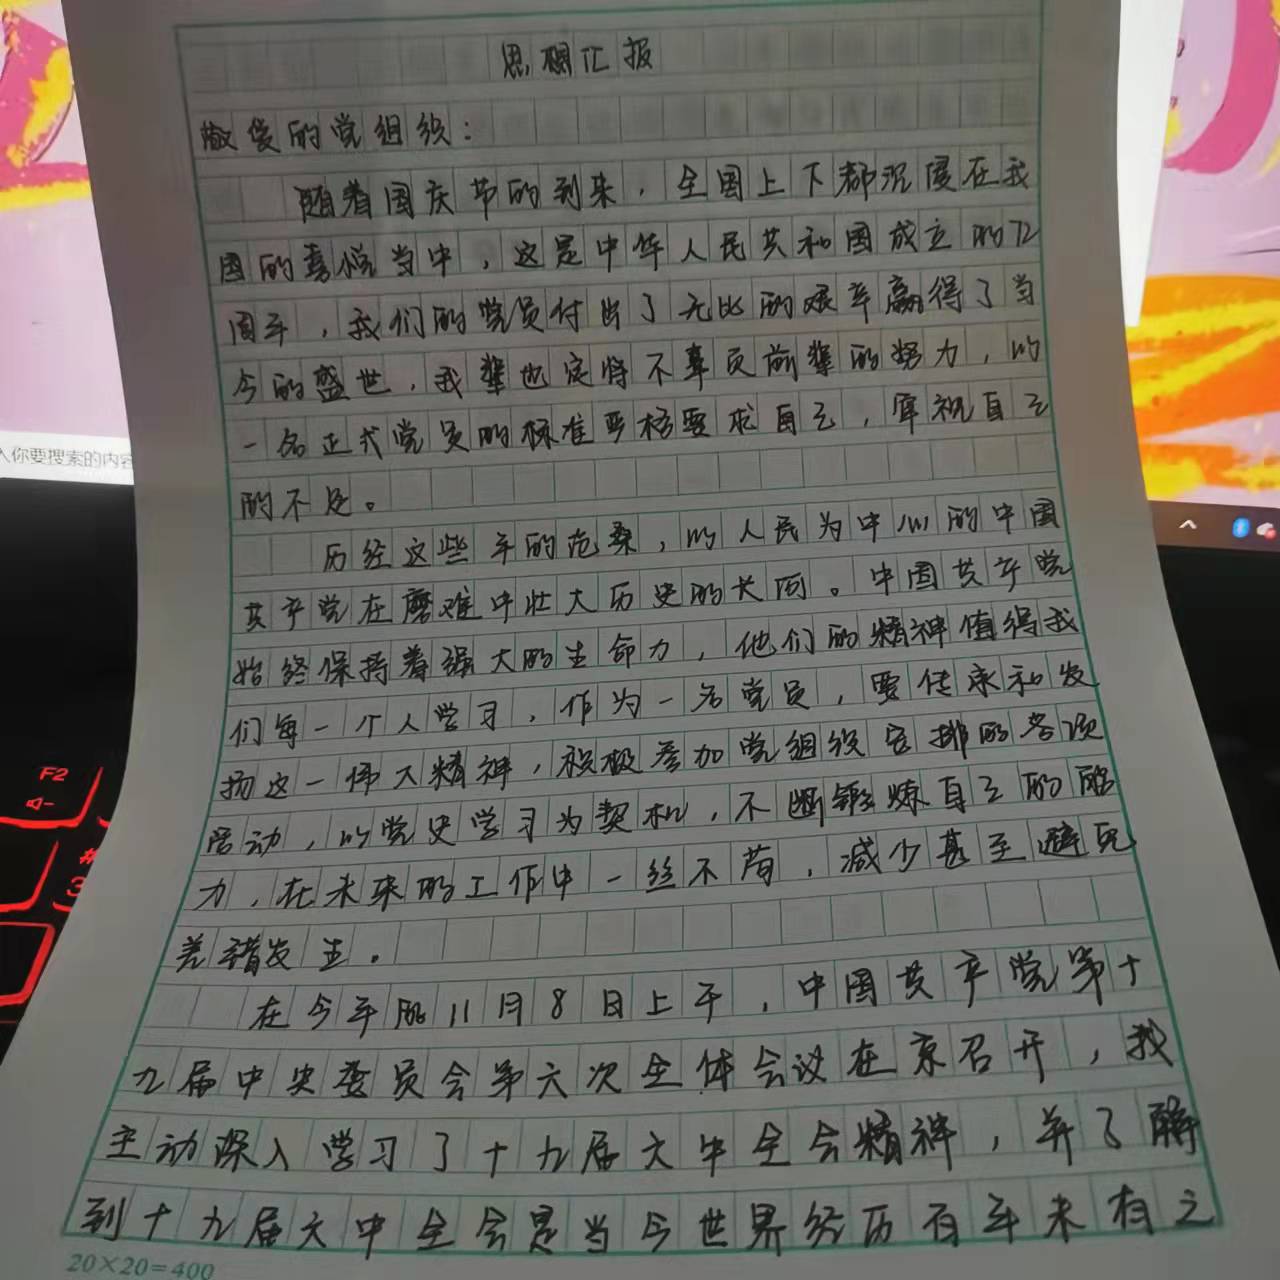 思想汇报
敬爱的党组织：
随着国庆节的到来，全国上下都沉侵在我
国的喜悦当中，这是中华人民共和国成立的72
周年，我们的党员付出了无比的艰辛赢得了当
今的盛世，我辈也定将不辜负前辈的努力，以
一名正式党员的标准严格要求自己，审视自己
的不足。
历经这些年的沧桑，以人民为中心的中国
共产党在磨难中壮大历史的长河。中国共产党
始终保持着强大的生命力，他们的精神值得我
们每一个人学习，作为一名党员，要传承和发
扬这一伟大精神，积极参加党组织安排的各项
活动，以党史学习为契机，不断锻炼自己的能
力，在未来的工作中一丝不苟，减少甚至避免
差错发生。
在今年的11月8日上午，中国共产党第十
九届中央委员会第六次全体会议在京召开，我
主动深入学习了十九届六中全会精神，并了解
到十九届六中全会是当今世界经历百年未有之
20×20=400
入你要搜索的内容
F2
#
3